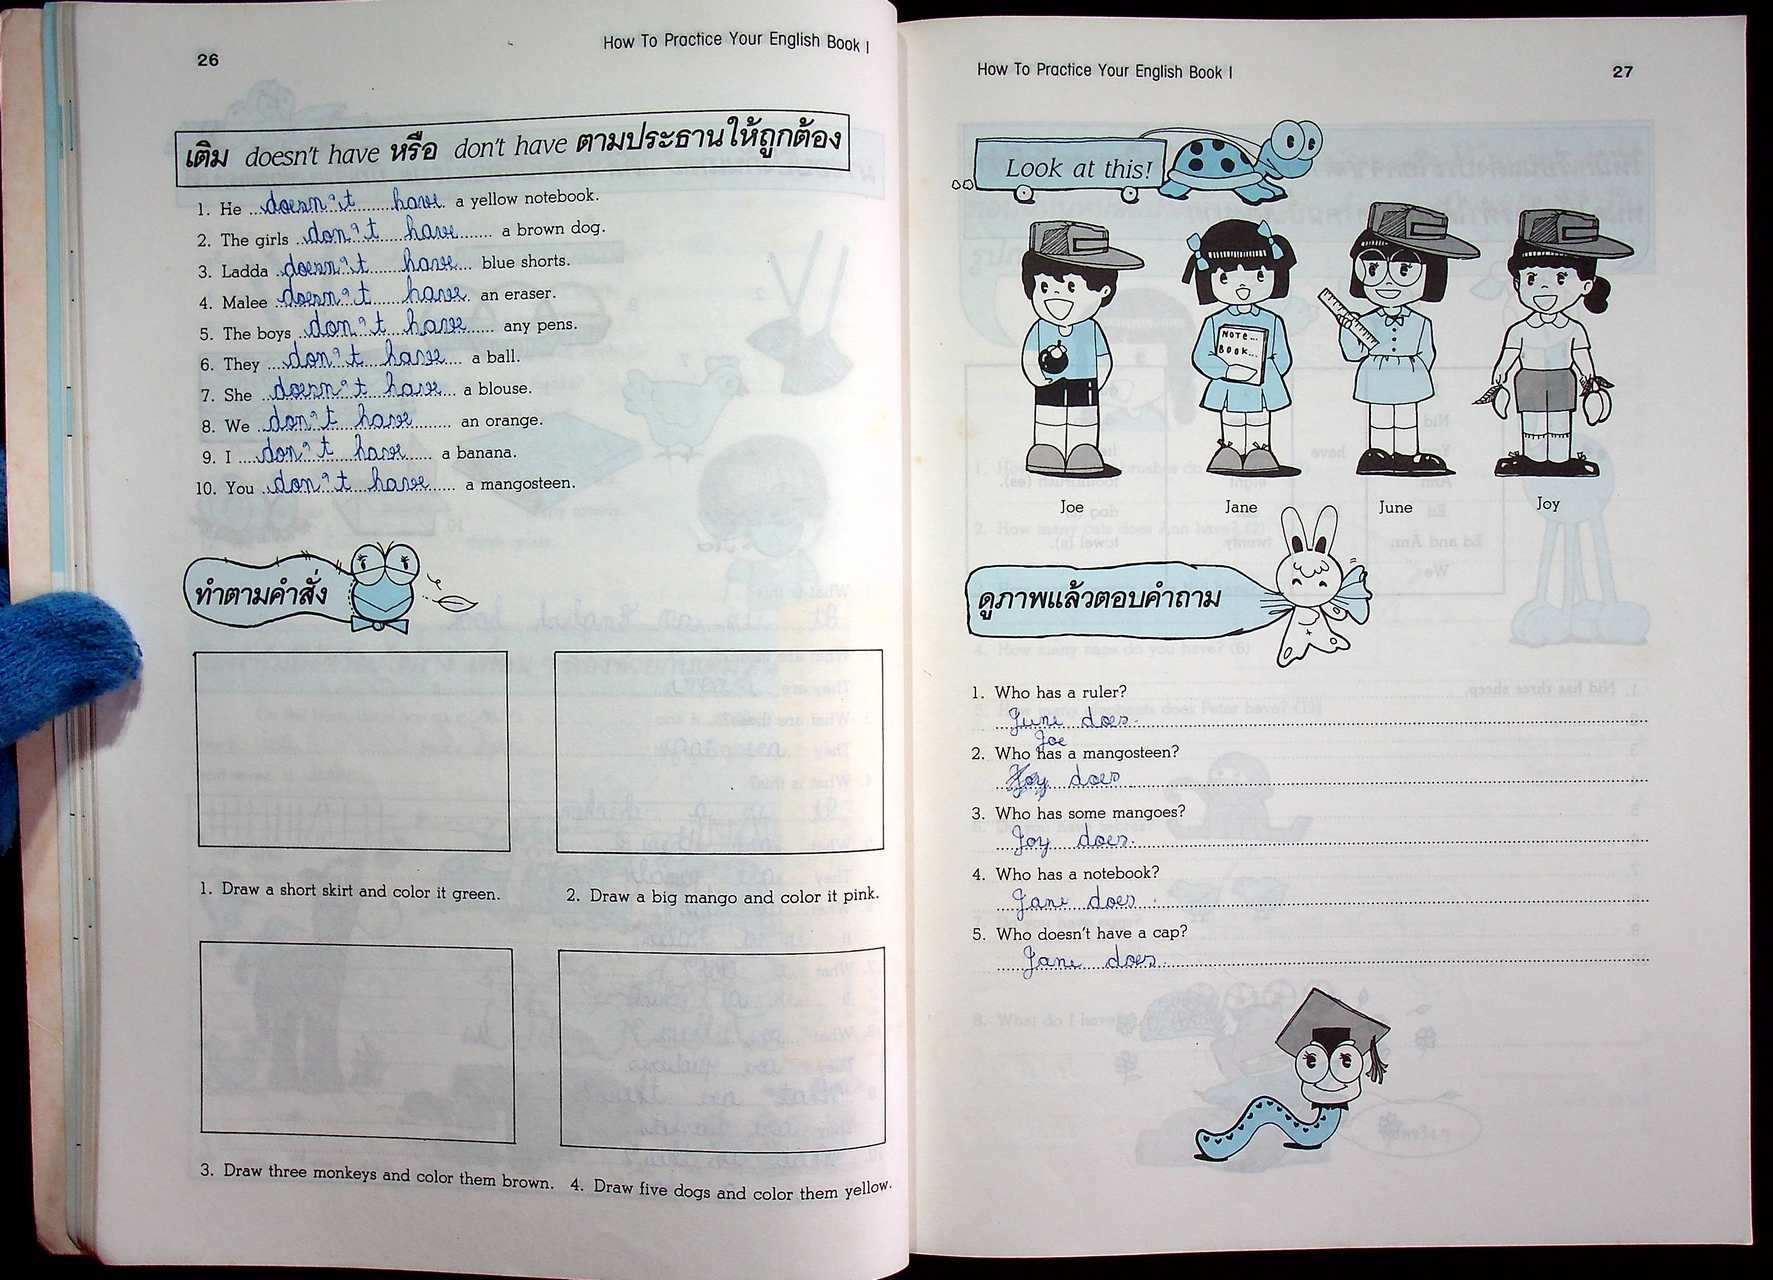 26
How To Practice Your English Book I
เติม doesn't have หรือ don't have ตามประธานให้ถูกต้อง
1. He doesn't have a yellow notebook.
2. The girls don't have a brown dog.
3. Ladda doesn't have blue shorts.
4. Malee doesn't have an eraser.
5. The boys don't have any pens.
6. They don't have a ball.
7. She doesn't have a blouse.
8. We don't have an orange.
9. I don't have a banana.
10. You don't have a mangosteen.
ทำตามคำสั่ง
1. Draw a short skirt and color it green.
2. Draw a big mango and color it pink.
3. Draw three monkeys and color them brown.
4. Draw five dogs and color them yellow.
How To Practice Your English Book I
27
Look at this!
NOTE...
BOOK...
Joe
Jane
June
Joy
ดูภาพแล้วตอบคำถาม
1. Who has a ruler?
June does.
2. Who has a mangosteen?
Joe
Joy does
3. Who has some mangoes?
Joy does.
4. Who has a notebook?
Jane does.
5. Who doesn't have a cap?
Jane does.